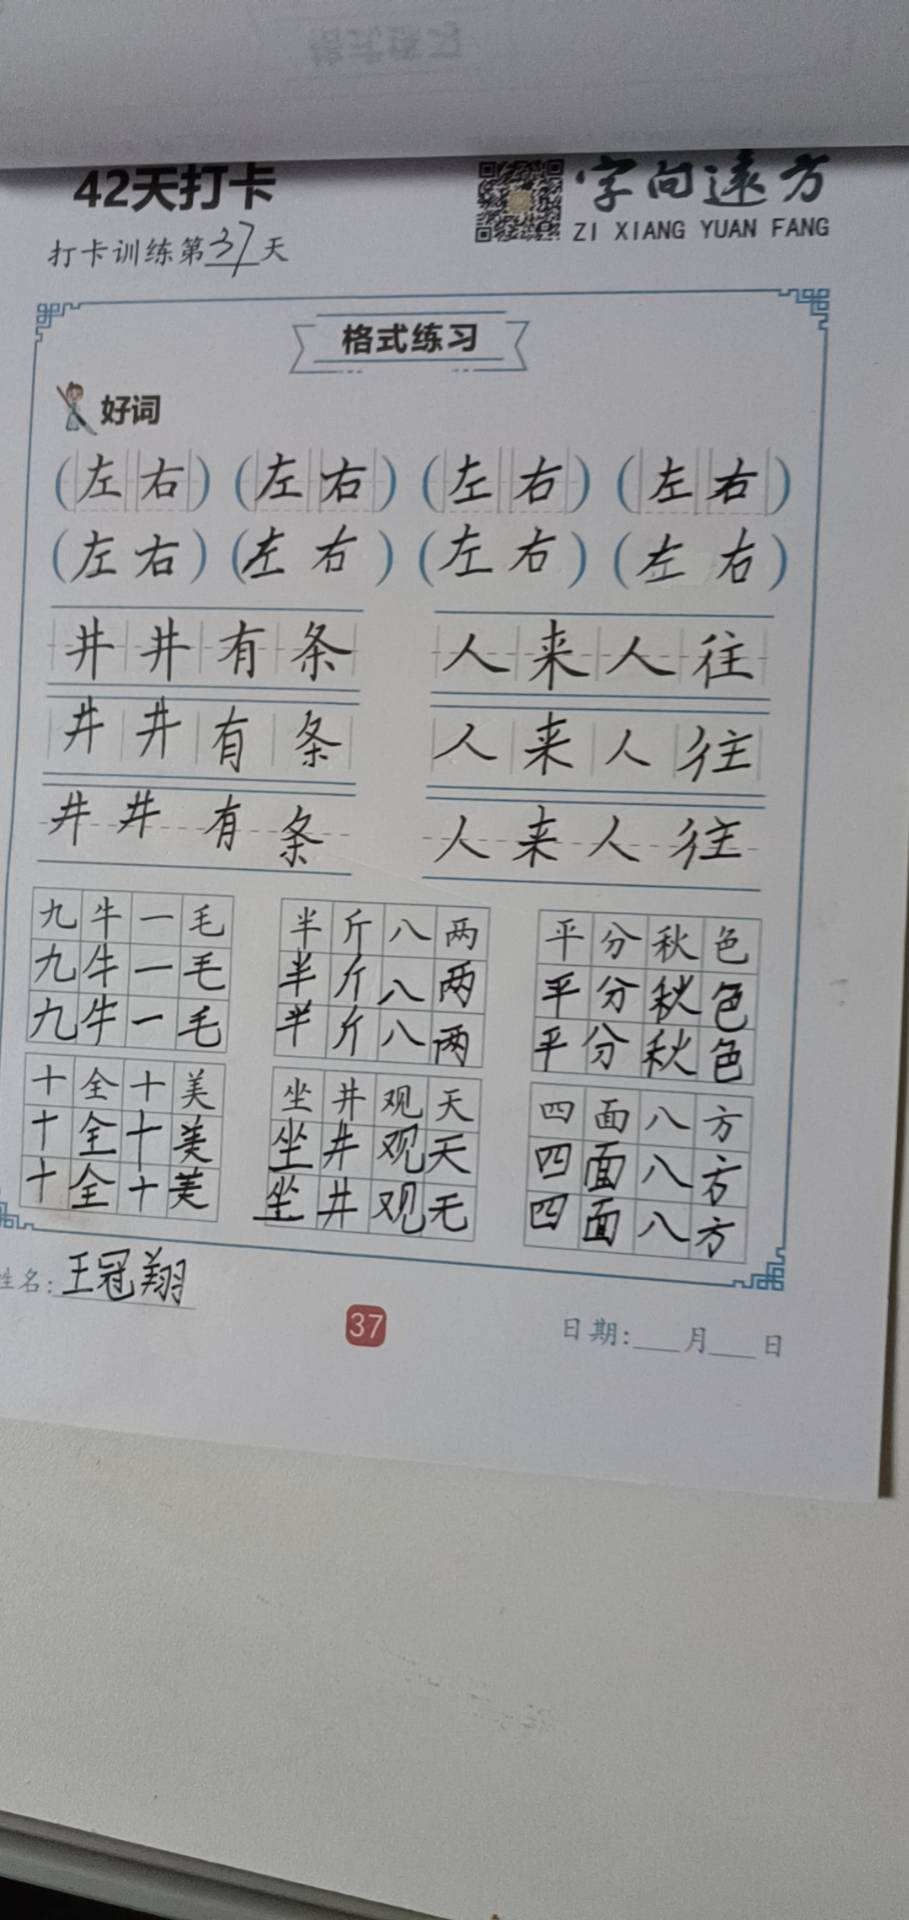 42天打卡
字向遠方
ZI XIANG YUAN FANG
打卡训练第37天
格式练习
好词
(左右) (左右) (左右) (左右)
(左右) (左右) (左右) (左右)
井井有条 人来人往
井井有条 人来人往
井井有条 人来人往
九牛一毛 半斤八两 平分秋色
九牛一毛 半斤八两 平分秋色
九牛一毛 半斤八两 平分秋色
十全十美 坐井观天 四面八方
十全十美 坐井观天 四面八方
十全十美 坐井观无 四面八方
姓名:王冠翔
37
日期:___月___日